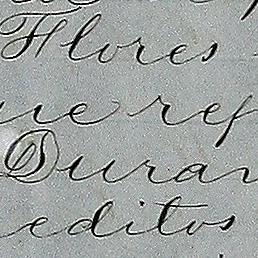 Flores
ue ref
Duran
editos